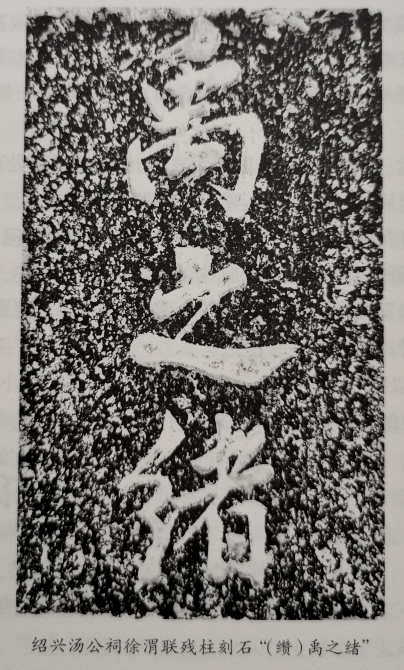 禹之绪
绍兴汤公祠徐渭联残柱刻石“(缵)禹之绪”